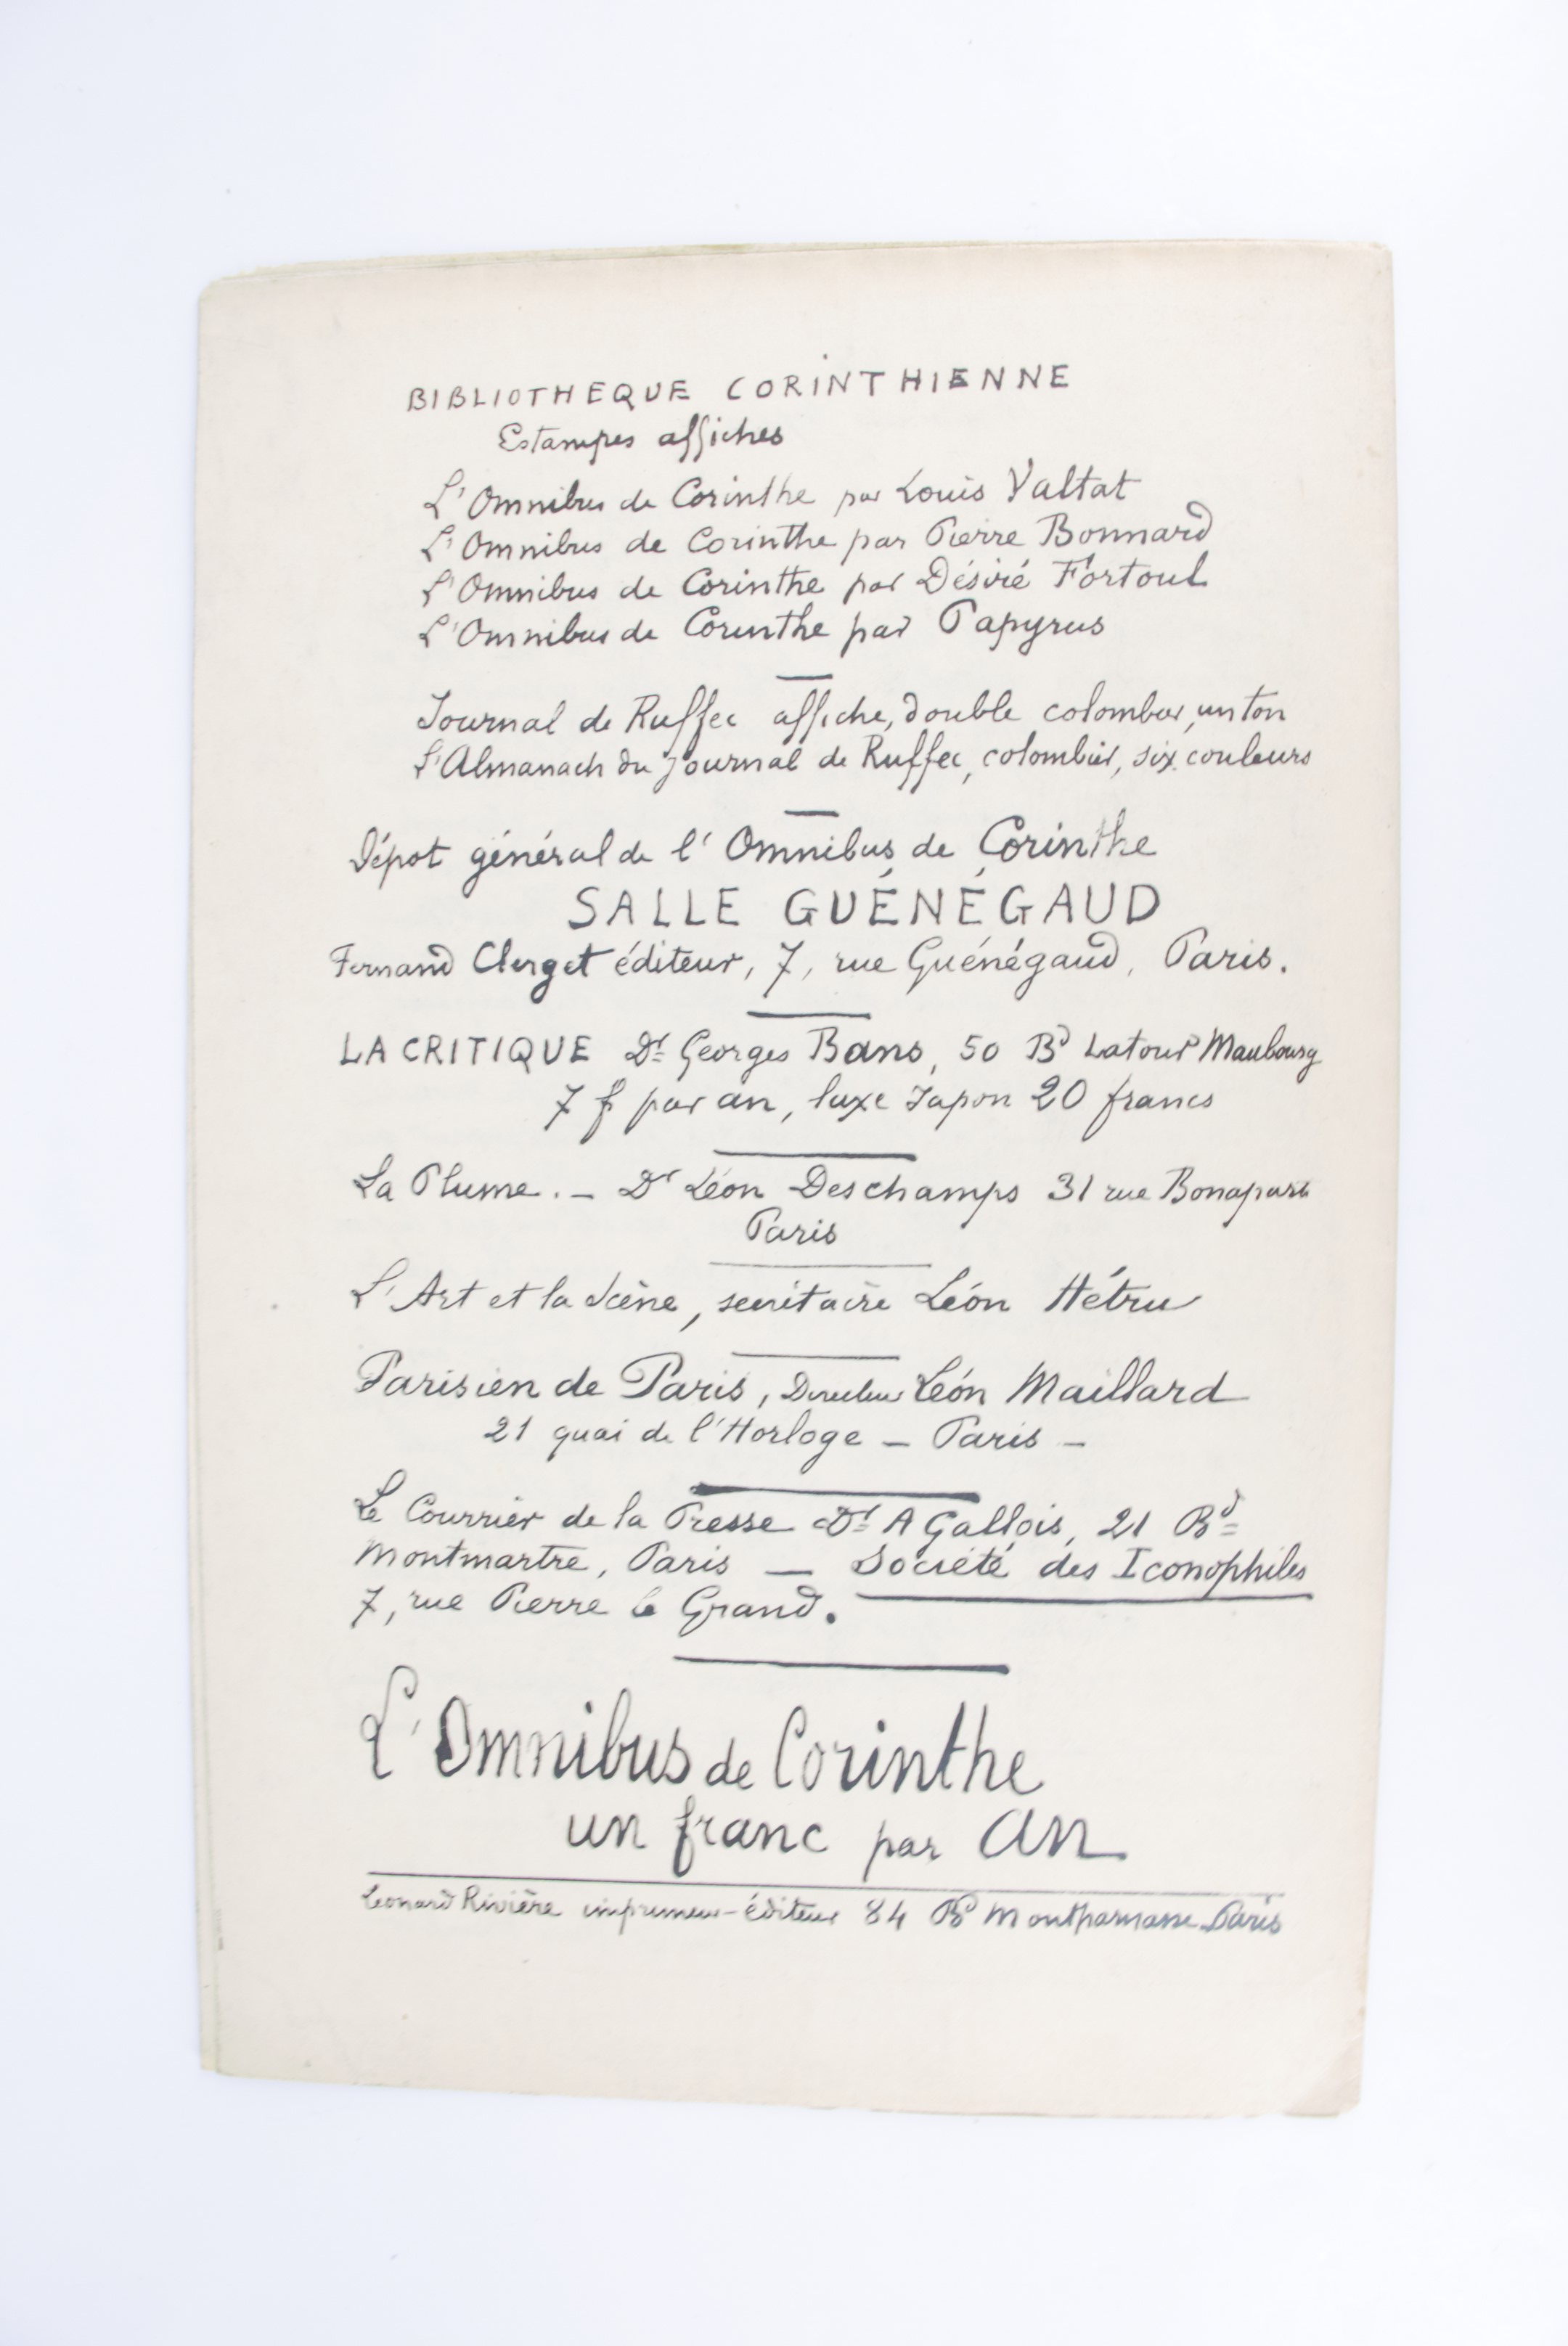 BIBLIOTHEQUE CORINTHIENNE
Estampes affiches
L'Omnibus de Corinthe par Louis Valtat
L'Omnibus de Corinthe par Pierre Bonnard
L'Omnibus de Corinthe par Désiré Fortoul
L'Omnibus de Corinthe par Papyrus
Journal de Ruffec affiche, double colombier, un ton
L'Almanach du journal de Ruffec, colombier, six couleurs
Dépot général de l'Omnibus de Corinthe
SALLE GUÉNÉGAUD
Fernand Clerget éditeur, 7, rue Guénégaud, Paris.
LA CRITIQUE Dr Georges Bans, 50 Bd Latour Maubourg
7 f par an, luxe Japon 20 francs
La Plume. - Dr Léon Deschamps 31 rue Bonaparte
Paris
L'Art et la Scène, secrétaire Léon Hétru
Parisien de Paris, Directeur Léon Maillard
21 quai de l'Horloge - Paris -
Le Courrier de la Presse Dr A Gallois, 21 Bd
Montmartre, Paris — Société des Iconophiles
7, rue Pierre le Grand.
L'Omnibus de Corinthe
un franc par an
Leonard Rivière imprimeur-éditeur 84 Bd Montparnasse Paris